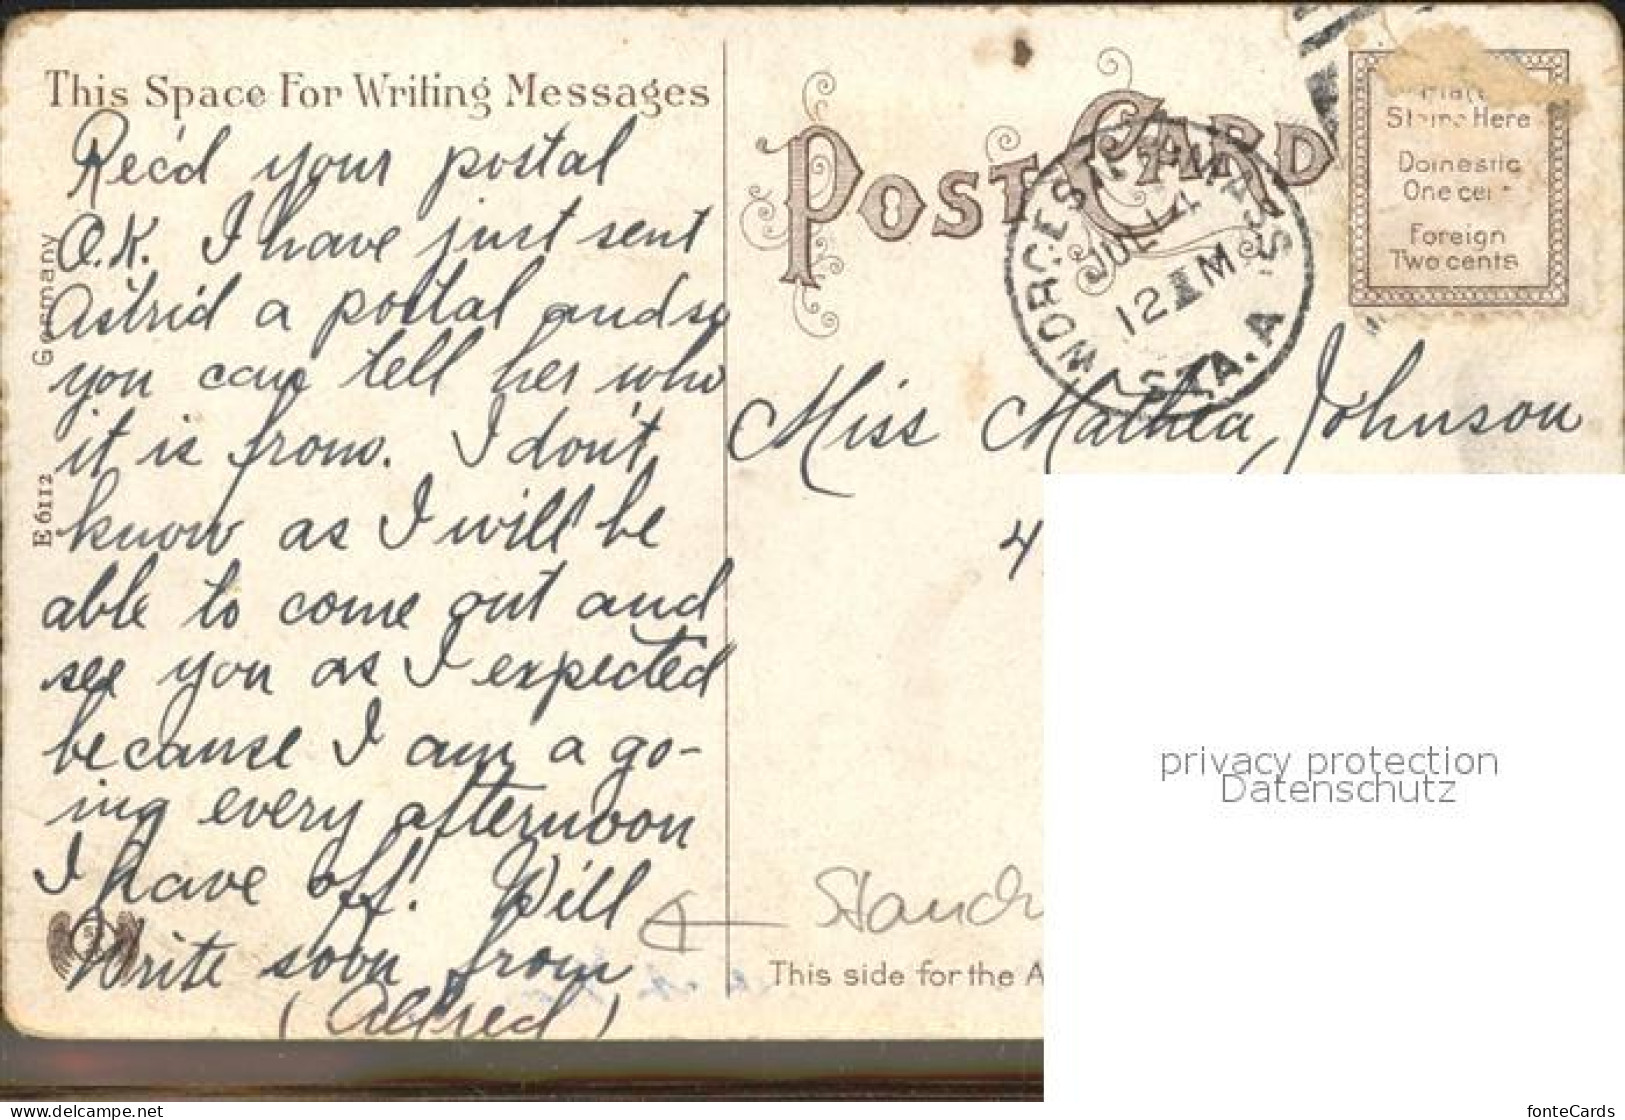 This Space For Writing Messages
Rec'd your postal
O.K. I have just sent
Astrid a postal and so
you can tell her who
it is from. I don't
know as I will be
able to come out and
see you as I expected
because I am a go-
ing every afternoon
I have off! Will
Write soon from
(Alfred)
Germany
E 6112
POST CARD
WORCESTER MASS.
JUL 14
12 M
STA. A
Place
Stamp Here
Domestic
One cent
Foreign
Two cents
Miss Mathea Johnson
4
This side for the A
privacy protection
Datenschutz
fonteCards